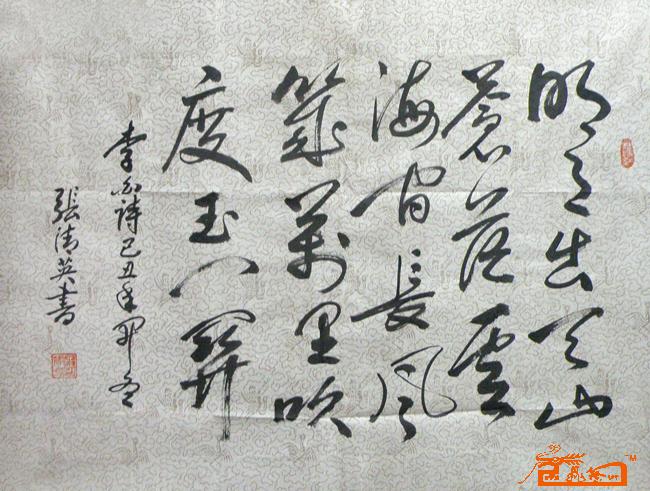 明月出天山
蒼茫雲
海間長風
幾萬里吹
度玉門關
李白詩己丑年初冬
張清英書
TM